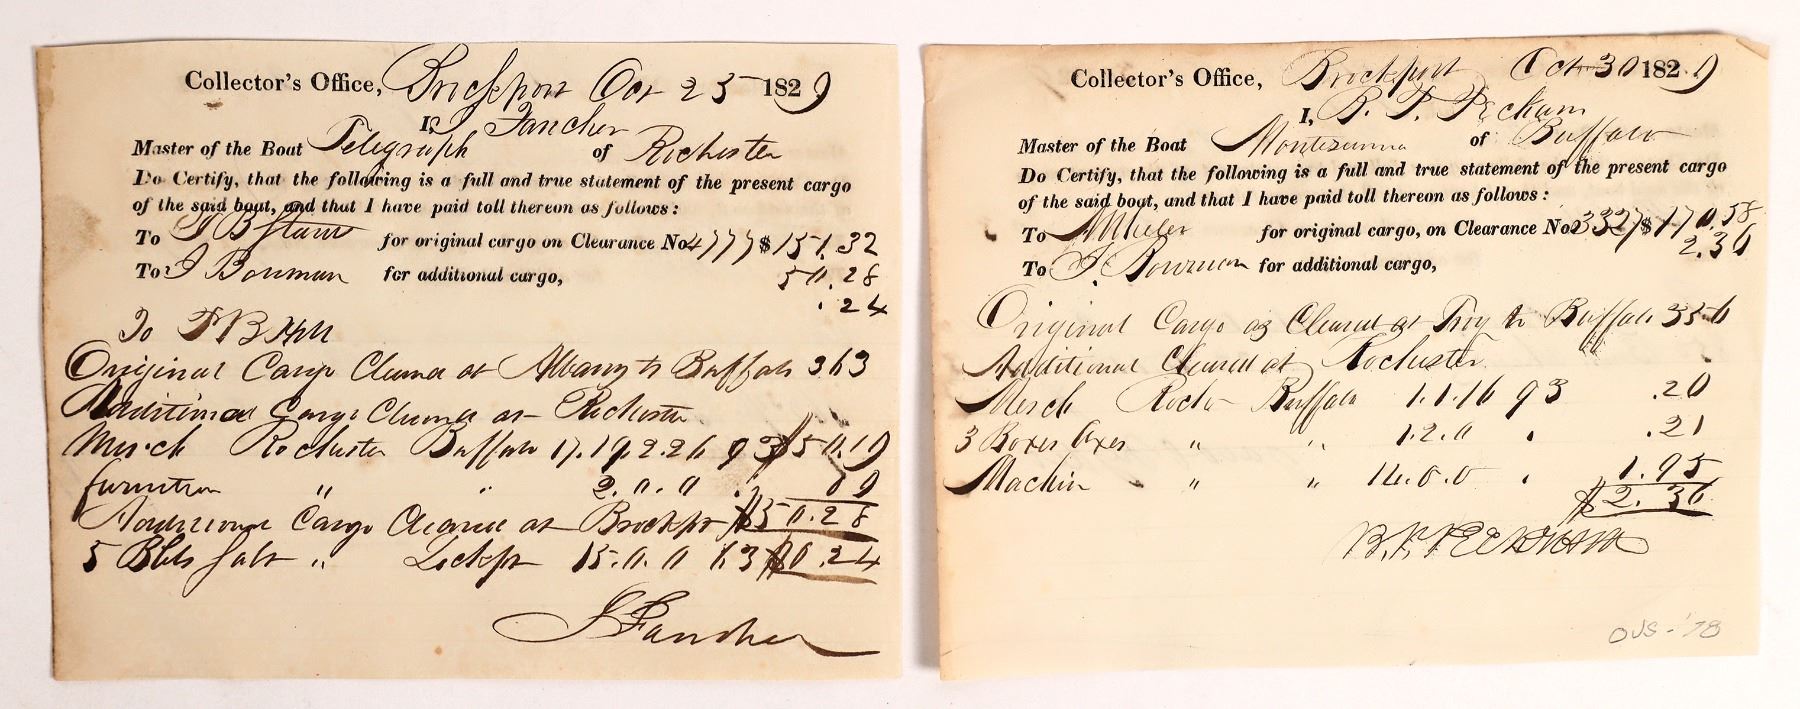 Collector's Office, Brockport Oct 25 1829
I, J Fancher
Master of the Boat Telegraph of Rochester
Do Certify, that the following is a full and true statement of the present cargo
of the said boat, and that I have paid toll thereon as follows:
To for original cargo on Clearance No 4777 $151.32
To J Bowman for additional cargo, 50.28
.24
To
Original Cargo Cleared at Albany to Buffalo 363
Additional Cargo Cleared at Rochester
Merch Rochester Buffalo 17.19.2.26 93 $50.19
furniture " " 2.0.0 09
Additional Cargo Cleared at Brockport $50.28
5 Bbls Salt " Lockpt 15.0.0 63 $0.24
J Fancher
Collector's Office, Brockport Oct 30 1829
I, B. F. Peckam
Master of the Boat Montezumma of Buffalo
Do Certify, that the following is a full and true statement of the present cargo
of the said boat, and that I have paid toll thereon as follows:
To for original cargo, on Clearance No 3327 $170.58
2.36
To J. Bowman for additional cargo,
Original Cargo as Cleared at Troy to Buffalo 356
Additional Cleared at Rochester
Merch Rochr Buffalo 1.1.16 93 .20
3 Boxes Axes " " 1.2.0 . .21
Machin " " 14.0.0 . 1.95
$2.36
OVS-'78